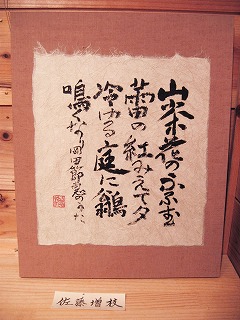 山茶花のふふむ
蕾の紅みえて夕
冷ゆる庭に鶲
鳴くなり 岡田節
佐藤増枝